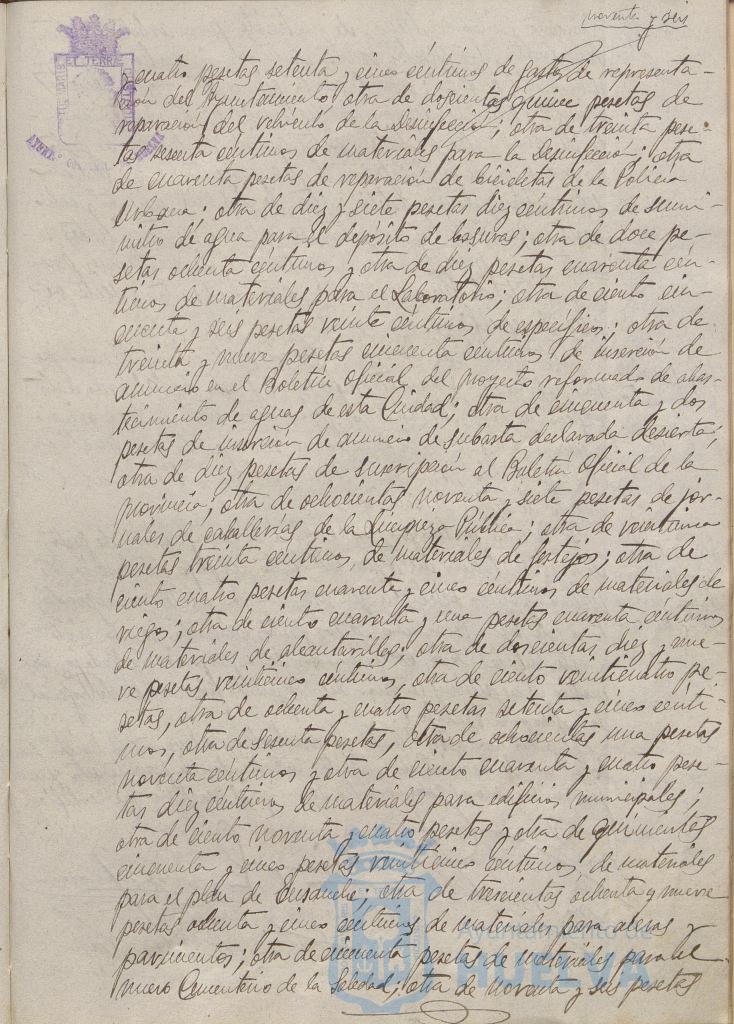 noventa y seis
y cuatro pesetas setenta y cinco céntimos de gastos de representa-
ción del Ayuntamiento; otra de doscientas quince pesetas de
reparación del vehículo de la Desinfección; otra de treinta pese-
tas sesenta céntimos de materiales para la Desinfección; otra
de cuarenta pesetas de reparación de bicicletas de la Policia
Urbana; otra de diez y siete pesetas diez céntimos de sumi-
nistro de agua para el depósito de basuras; otra de doce pe-
setas ochenta céntimos y otra de diez pesetas cuarenta cén-
timos de materiales para el Laboratorio; otra de ciento cin-
cuenta y seis pesetas veinte céntimos de específicos; otra de
treinta y nueve pesetas cincuenta céntimos de inserción de
anuncio en el Boletín Oficial del proyecto reformado de abas-
tecimiento de aguas de esta Ciudad; otra de cincuenta y dos
pesetas de inserción de anuncio de subasta declarada desierta;
otra de diez pesetas de suscripción al Boletín Oficial de la
provincia; otra de ochocientas noventa y siete pesetas de jor-
nales de caballerias de la Limpieza Pública; otra de veintiuna
pesetas treinta céntimos, de materiales de festejos; otra de
ciento cuatro pesetas cuarenta y cinco céntimos de materiales de
riegos; otra de ciento cuarenta y una pesetas cuarenta céntimos
de materiales de alcantarillas; otra de doscientas diez y nue-
ve pesetas veinticinco céntimos, otra de ciento veinticuatro pe-
setas, otra de ochenta y cuatro pesetas setenta y cinco cénti-
mos, otra de sesenta pesetas, otra de ochocientas una pesetas
noventa céntimos y otra de ciento cuarenta y cuatro pese-
tas diez céntimos de materiales para edificios municipales;
otra de ciento noventa y cuatro pesetas y otra de quinientas
cincuenta y cinco pesetas veinticinco céntimos, de materiales
para el plan de Ensanche; otra de trescientas ochenta y nueve
pesetas ochenta y cinco céntimos de materiales para aceras y
pavimentos; otra de cincuenta pesetas de materiales para el
nuevo Cementerio de la Soledad; otra de noventa y seis pesetas
Ayuntamiento de
HUELVA